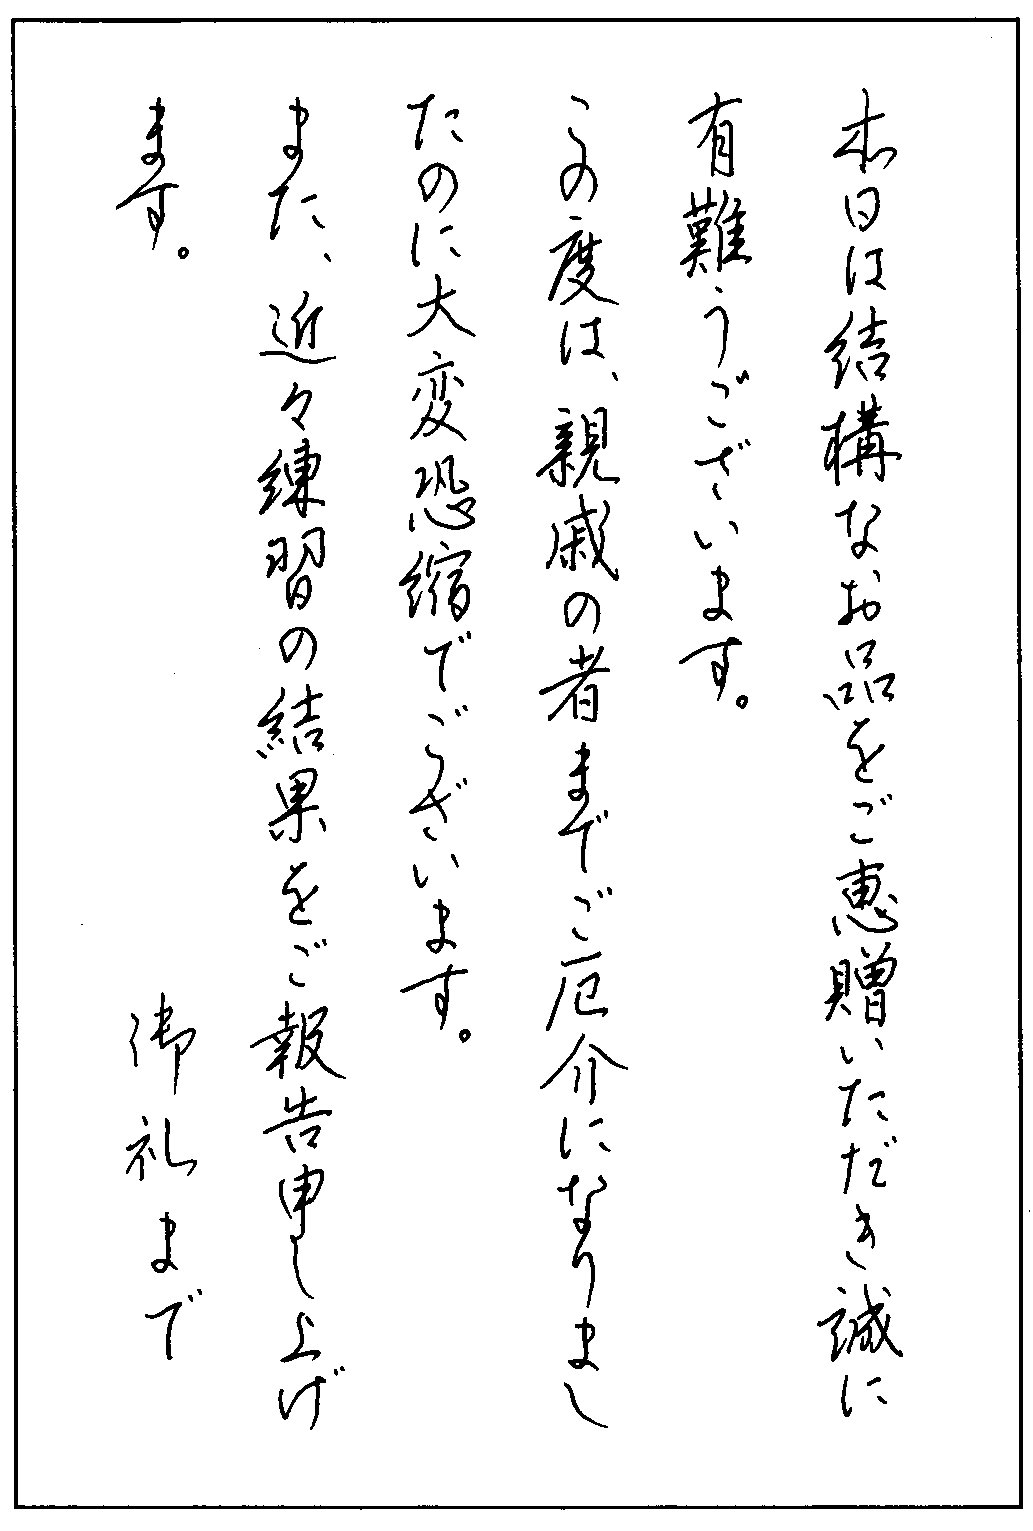 本日は結構なお品をご恵贈いただき誠に
有難うございます。
この度は、親戚の者までご厄介になりまし
たのに大変恐縮でございます。
また、近々練習の結果をご報告申し上げ
ます。
御礼まで